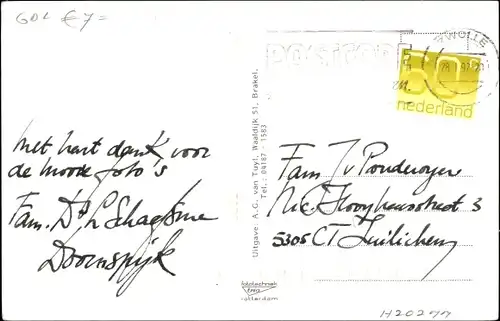 GDL €7=
ZWOLLE
28.1.92
50
nederland
Met hart dank voor
de mooie foto's
Fam.
Doornspijk
Uitgave: A.G. van Tuyl, Waaldijk 51, Brakel.
Tel.: 04187 - 1583
fototechniek
rotterdam
Fam. J v Ponderoyen
3
5305 CT Zuilichem
H20277